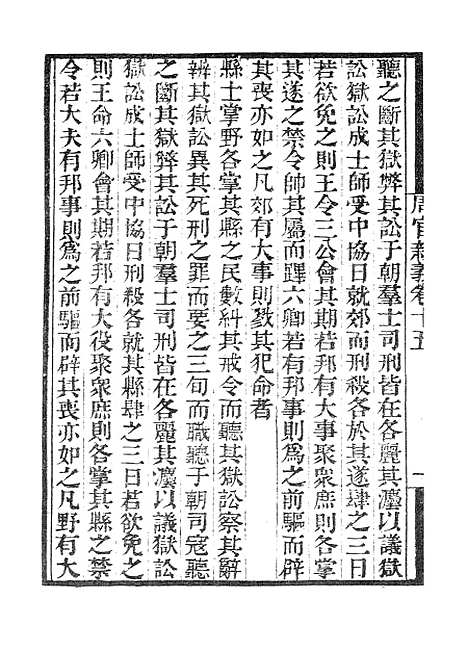 周官新義卷十五
一
聽之斷其獄弊其訟于朝羣士司刑皆在各麗其灋以議獄
訟獄訟成士師受中協日就郊而刑殺各於其遂肆之三日
若欲免之則王令三公會其期若邦有大事聚衆庶則各掌
其遂之禁令帥其屬而蹕六卿若有邦事則爲之前驅而辟
其喪亦如之凡郊有大事則戮其犯命者
縣士掌野各掌其縣之民數糾其戒令而聽其獄訟察其辭
辨其獄訟異其死刑之罪而要之三旬而職聽于朝司寇聽
之斷其獄弊其訟于朝羣士司刑皆在各麗其灋以議獄訟
獄訟成士師受中協日刑殺各就其縣肆之三日若欲免之
則王命六卿會其期若邦有大役聚衆庶則各掌其縣之禁
令若大夫有邦事則爲之前驅而辟其喪亦如之凡野有大